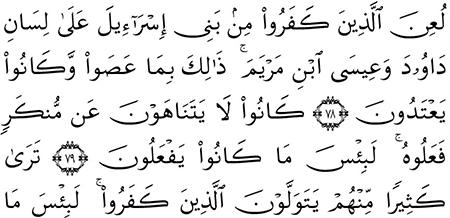 لُعِنَ ٱلَّذِينَ كَفَرُوا۟ مِنۢ بَنِىٓ إِسْرَٰٓءِيلَ عَلَىٰ لِسَانِ
دَاوُۥدَ وَعِيسَى ٱبْنِ مَرْيَمَ ۚ ذَٰلِكَ بِمَا عَصَوا۟ وَّكَانُوا۟
يَعْتَدُونَ ﴿٧٨﴾ كَانُوا۟ لَا يَتَنَاهَوْنَ عَن مُّنكَرٍ
فَعَلُوهُ ۚ لَبِئْسَ مَا كَانُوا۟ يَفْعَلُونَ ﴿٧٩﴾ تَرَىٰ
كَثِيرًا مِّنْهُمْ يَتَوَلَّوْنَ ٱلَّذِينَ كَفَرُوا۟ ۚ لَبِئْسَ مَا